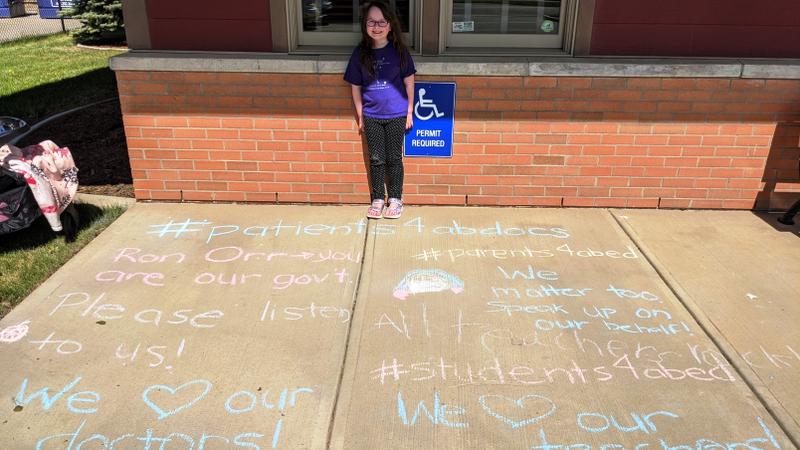 PERMIT
REQUIRED
#patients4abdocs
Ron Orr → you
are our gov't.
Please listen
to us!
We ♡ our
doctors!
#parents4abed
We
matter too.
Speak up on
our behalf!
All teachers rock!
#students4abed
We ♡ our
teachers!